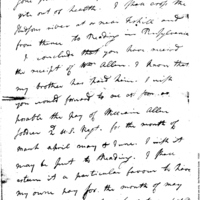 out of health. I shall cross the
Hudson river at or near Fishkill and
from thence to Reading in Pensylvania
I conclude that you have received
the receipt of Wm Allen. I know that
my brother has paid him. I wish
you would forward to me as soon as
possible the pay of Messrs Allen
Soldier 2 U.S. Regt. for the month of
march april may & June. I wish it
may be sent to Reading. I shall
esteem it a particular favour to have
my own pay for the month of may